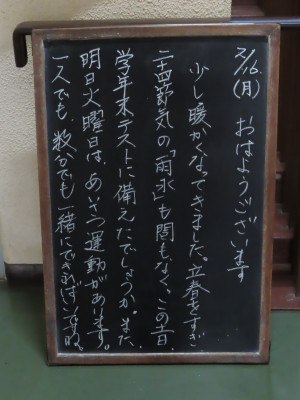 2/16(月) おはようございます
少し暖かくなってきました。立春をすぎ
二十四節気の「雨水」も間もなく。この土日、
学年末テストに備えたでしょうか。また
明日火曜日は、あいさつ運動があります。
一人でも、数分でも一緒にできればいいですね。